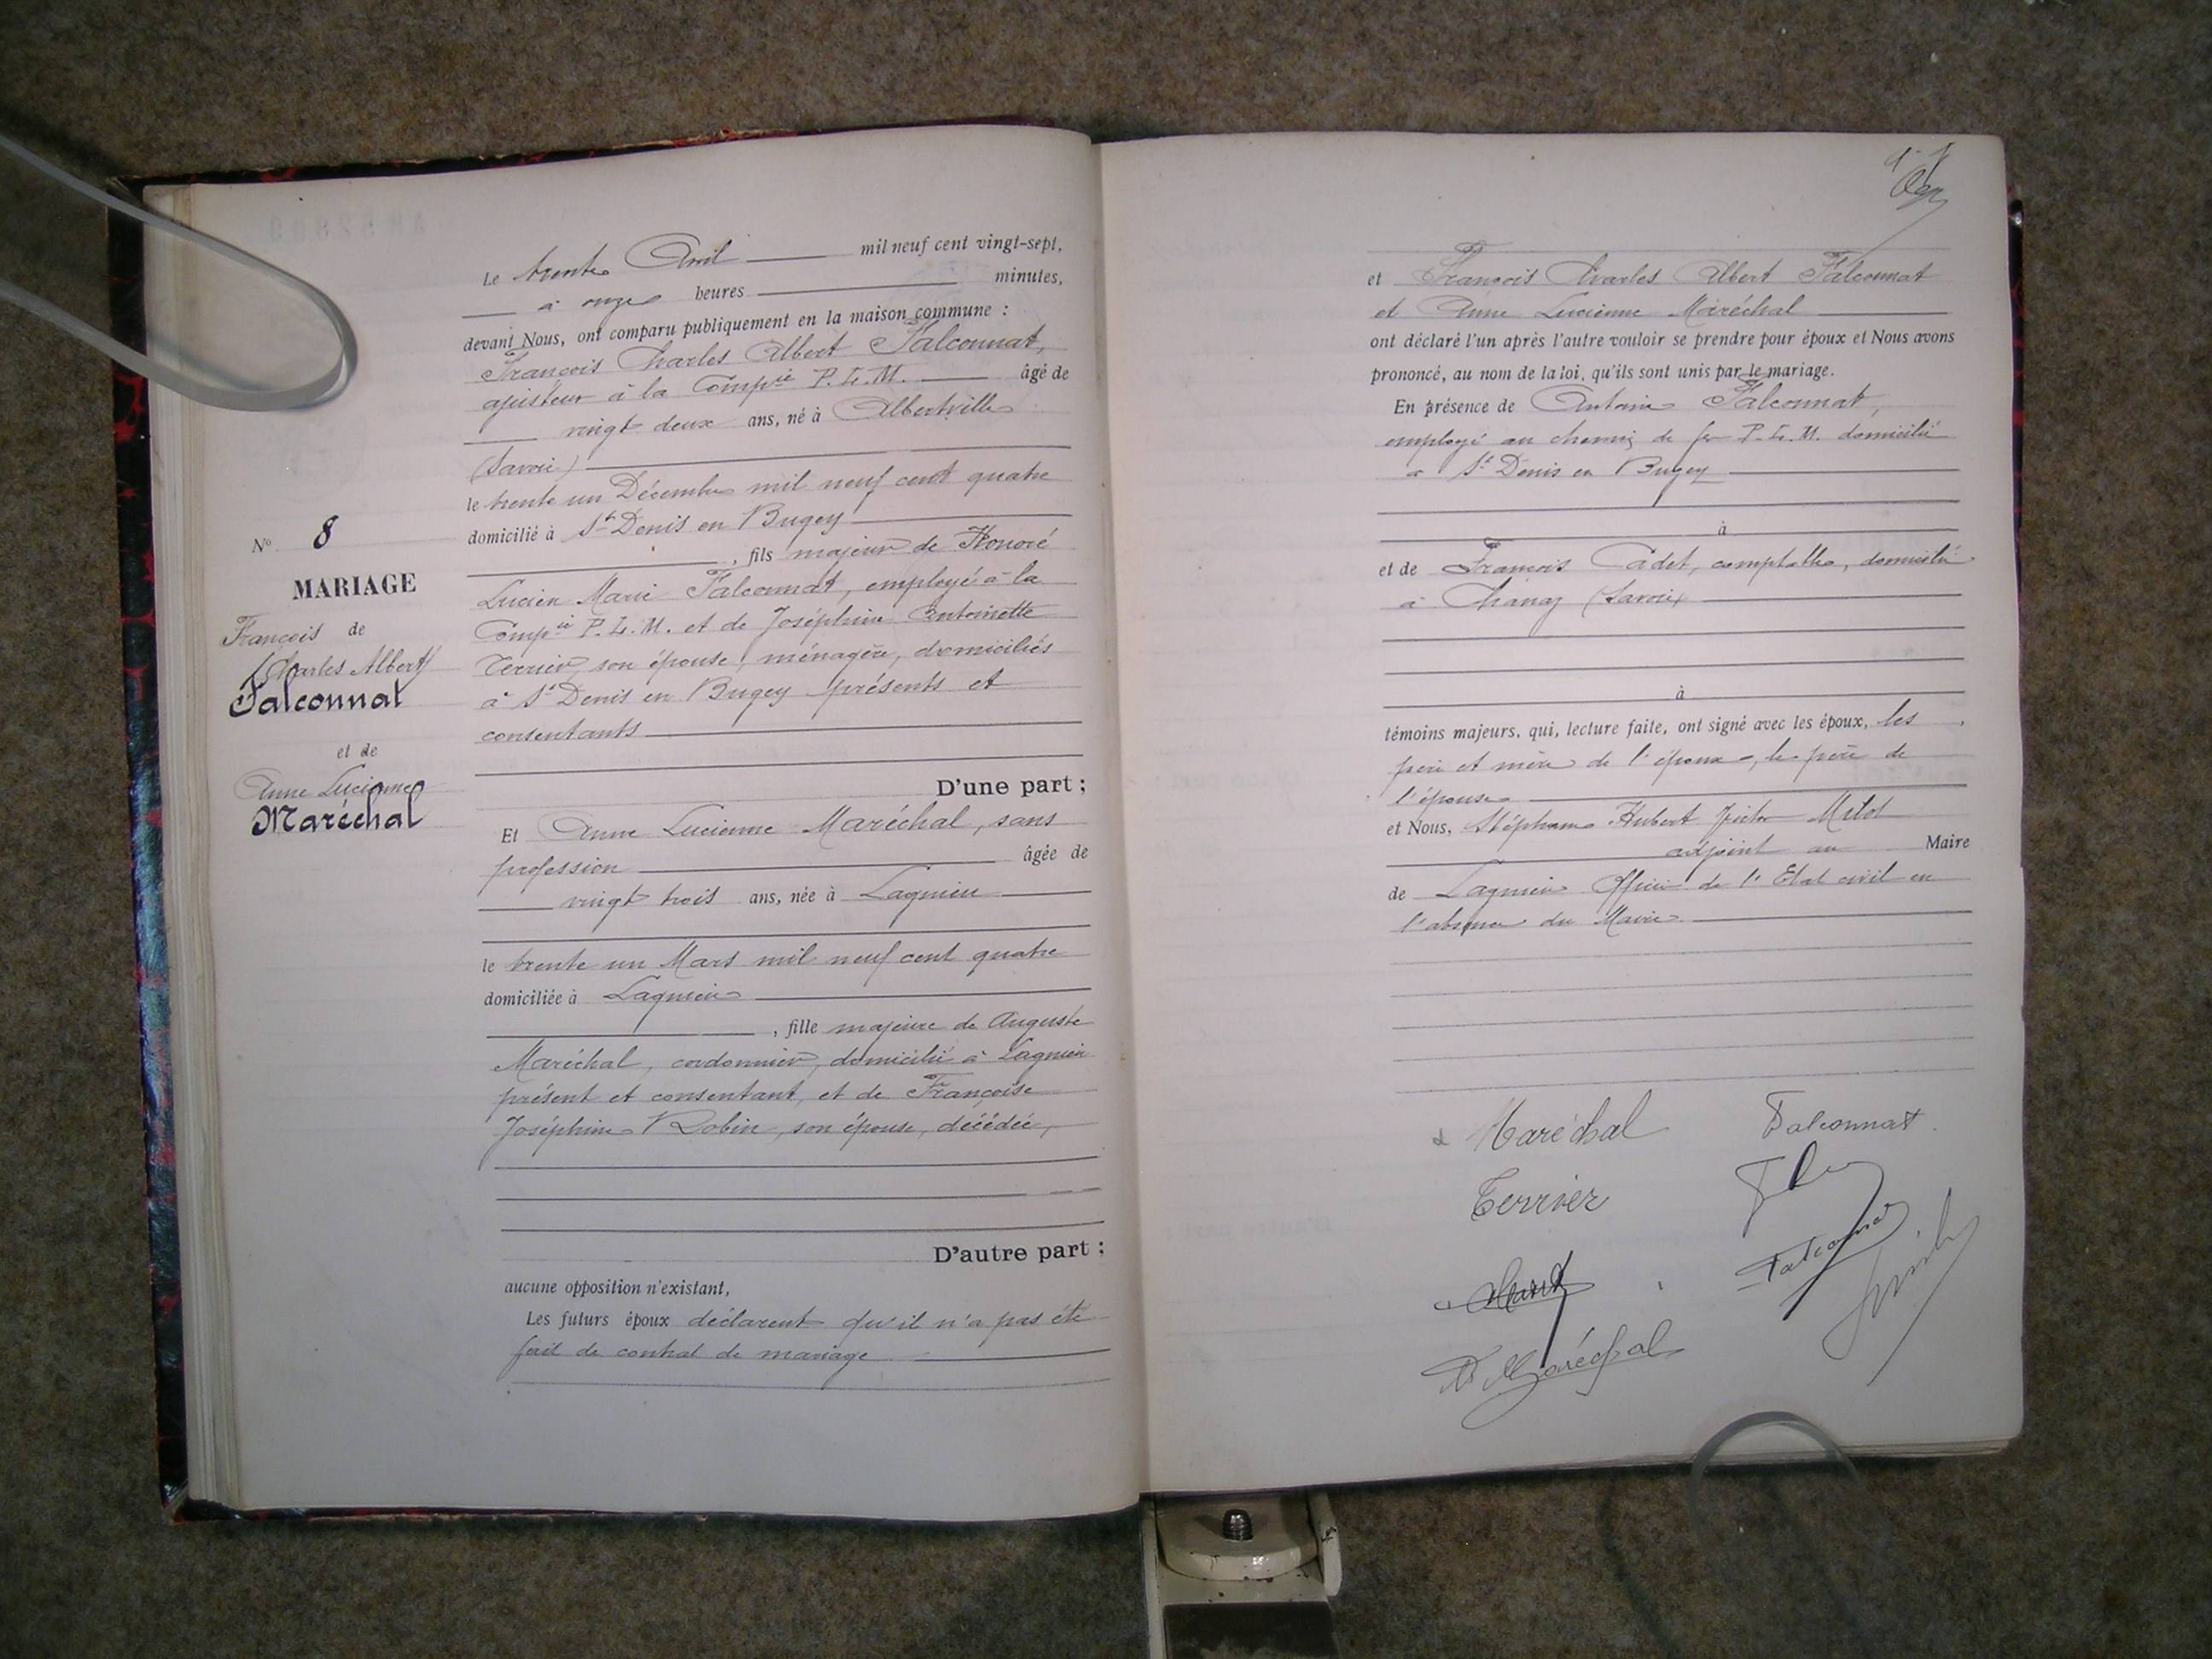 Le trente Avril mil neuf cent vingt-sept,
à onze heures minutes,
devant Nous, ont comparu publiquement en la maison commune :
François Charles Albert Falconnat,
ajusteur à la Compie P.L.M. âgé de
vingt deux ans, né à Albertville
(Savoie)
le trente un Décembre mil neuf cent quatre
domicilié à St Denis en Bugey
, fils majeur de Honoré
Lucien Marie Falconnat, employé à la
Compie P.L.M. et de Joséphine Antoinette
Terrier, son épouse, ménagère, domiciliés
à St Denis en Bugey présents et
consentants
D'une part ;
Et Anne Lucienne Maréchal, sans
profession âgée de
vingt trois ans, née à Lagnieu
le trente un Mars mil neuf cent quatre
domiciliée à Lagnieu
, fille majeure de Auguste
Maréchal, cordonnier, domicilié à Lagnieu
présent et consentant, et de Françoise
Joséphine Robin, son épouse, décédée,
D'autre part ;
aucune opposition n'existant,
Les futurs époux déclarent qu'il n'a pas été
fait de contrat de mariage
No 8
MARIAGE
François de
Charles Albert
Falconnat
et de
Anne Lucienne
Maréchal
et François Charles Albert Falconnat
et Anne Lucienne Maréchal
ont déclaré l'un après l'autre vouloir se prendre pour époux et Nous avons
prononcé, au nom de la loi, qu'ils sont unis par le mariage.
En présence de Antoine Falconnat,
employé au chemin de fer P.L.M. domicilié
à St Denis en Bugey
à
et de François Cadet, comptable, domicilié
à Chanaz (Savoie)
à
témoins majeurs, qui, lecture faite, ont signé avec les époux, les
père et mère de l'époux, le père de
l'épouse
et Nous, Stéphane Hubert Victor Milot
adjoint au Maire
de Lagnieu Officier de l'Etat civil en
l'absence du Maire
Maréchal
Falconnat
Terrier
Falconnat
Maréchal